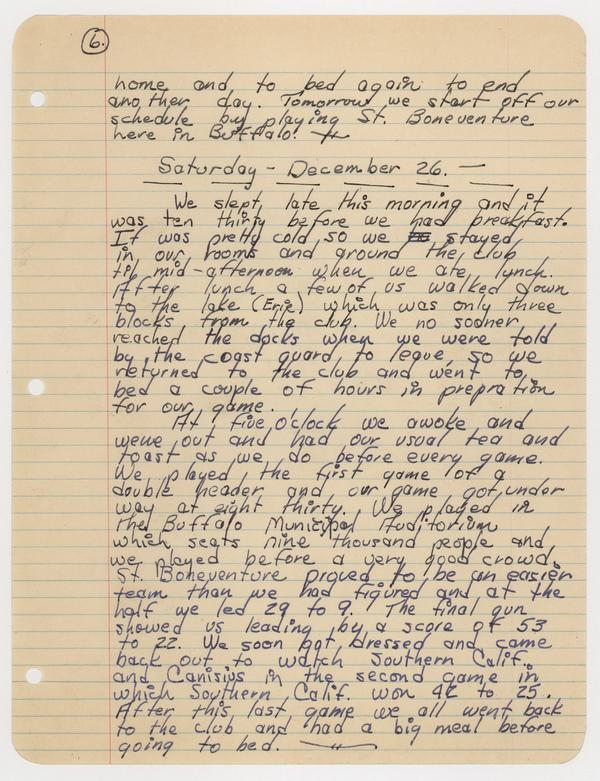 6.
home and to bed again to end
another day. Tomorrow we start off our
schedule by playing St. Boneventure
here in Buffalo!
Saturday - December 26. —
We slept late this morning and it
was ten thirty before we had breakfast.
It was pretty cold so we stayed
in our rooms and around the club
til mid-afternoon when we ate lunch.
After lunch a few of us walked down
to the lake (Erie) which was only three
blocks from the club. We no sooner
reached the docks when we were told
by the coast guard to leave, so we
returned to the club and went to
bed a couple of hours in prepration
for our game.
At five o'clock we awoke and
went out and had our usual tea and
toast as we do before every game.
We played the first game of a
double header and our game got under
way at eight thirty. We played in
the Buffalo Municipal Auditorium
which seats nine thousand people and
we played before a very good crowd.
St. Boneventure proved to be an easier
team than we had figured and at the
half we led 29 to 9. The final gun
showed us leading by a score of 53
to 22. We soon got dressed and came
back out to watch Southern Calif.
and Canisius in the second game in
which Southern Calif. won 42 to 25.
After this last game we all went back
to the club and had a big meal before
going to bed.